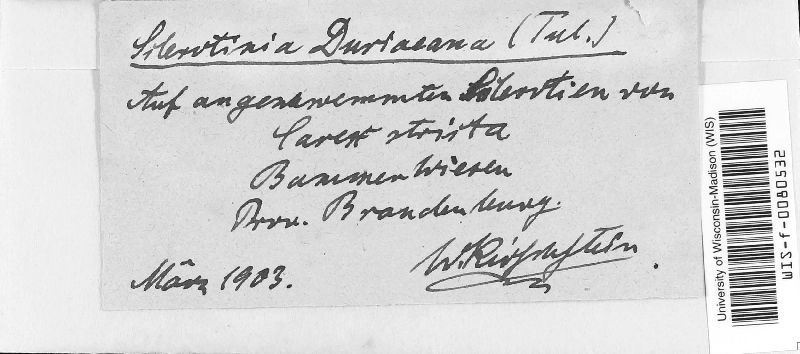 Sclerotinia Duriaeana (Tul.)
Auf angeschwemmten Sclerotien von
Carex stricta
Bammer Wiesen
Prov. Brandenburg.
März 1903. W. Kirschstein.
University of Wisconsin-Madison (WIS)
WIS-f-0080532